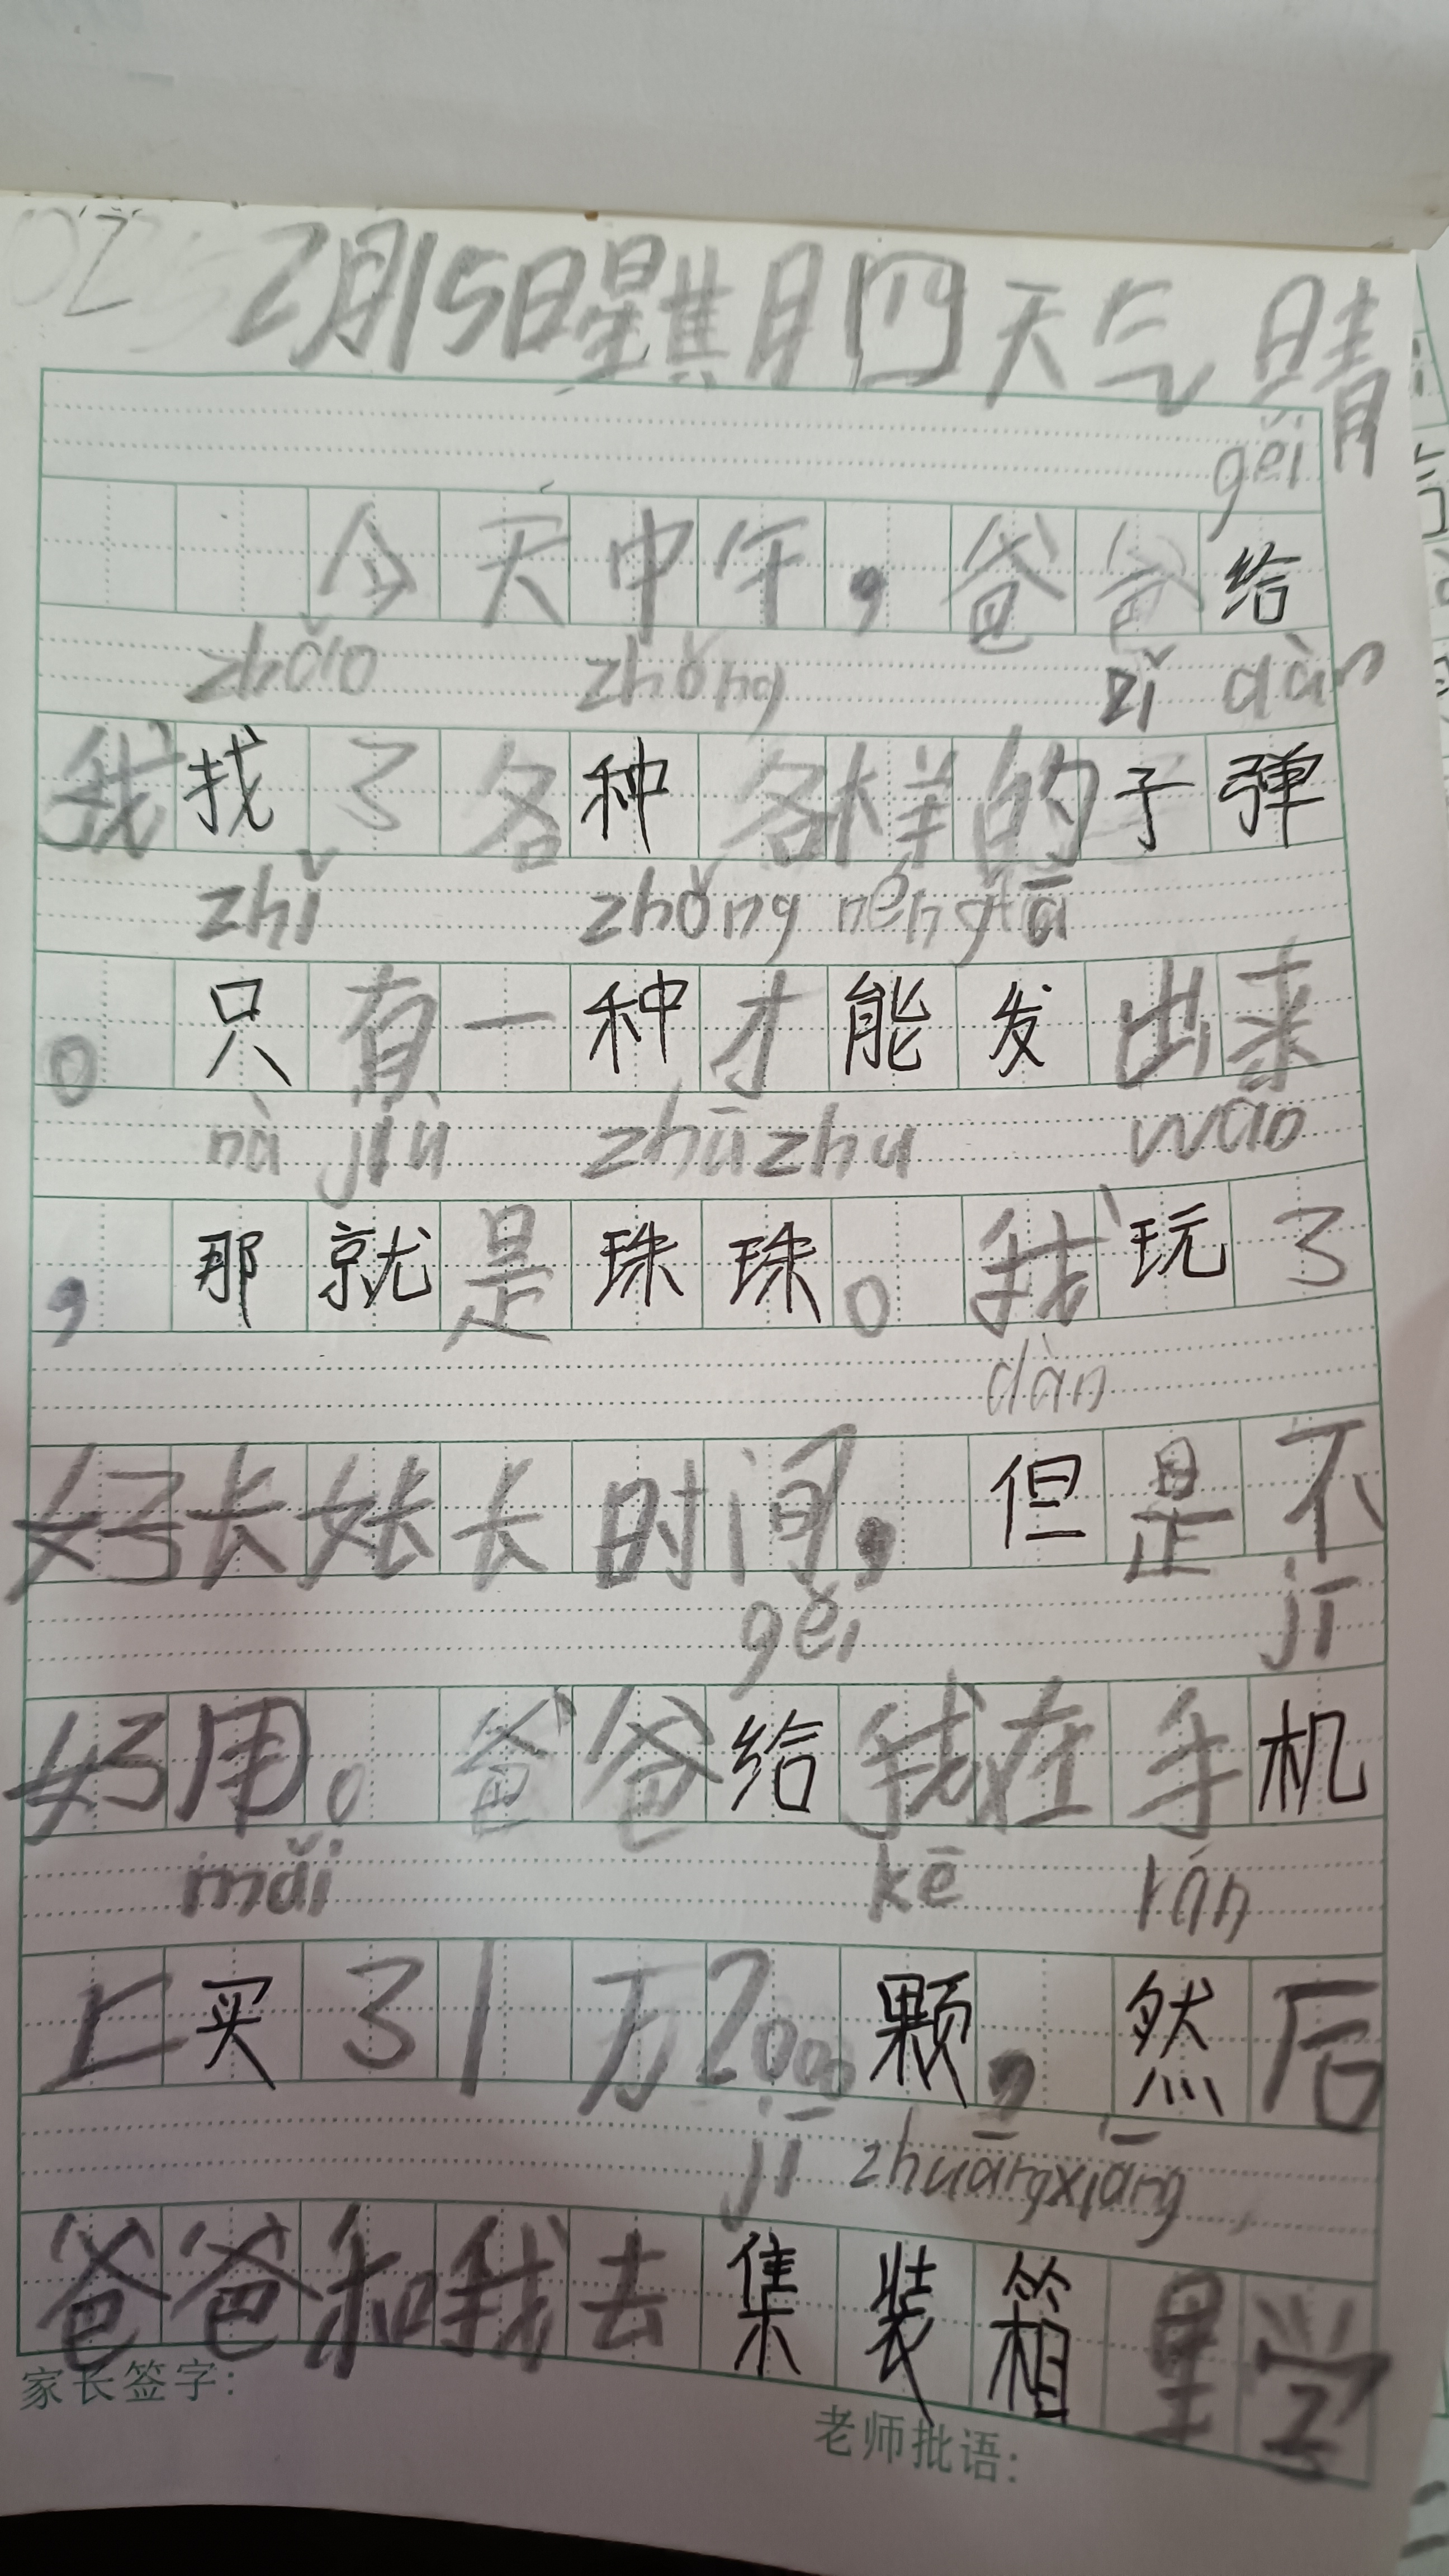 2月15日星期四天气晴
gěi
今天中午，爸爸给
zhǎo zhǒng zǐ dàn
我找了各种各样的子弹
zhǐ zhǒng néng fā
。只有一种才能发出来
nà jiù zhū zhu wán
，那就是珠珠。我玩了
dàn
好长好长时间，但是不
gěi jī
好用。爸爸给我在手机
mǎi kē rán
上买了1万2000颗，然后
jí zhuāng xiāng
爸爸和我去集装箱里学
家长签字：
老师批语：